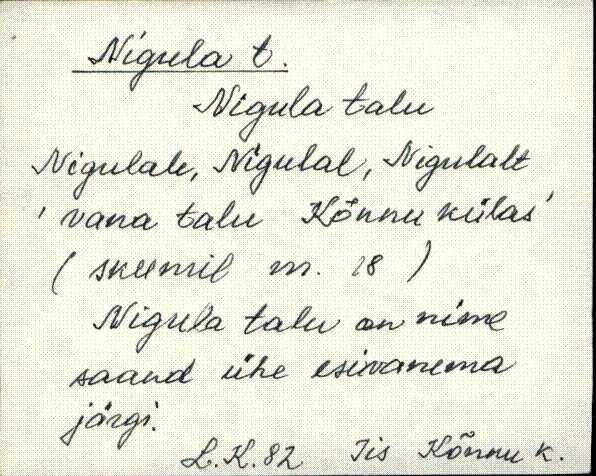 Nigula t.
Nigula talu
Nigulale, Nigulal, Nigulalt
'vana talu Kõnnu külas'
(skeemil nr. 18)
Nigula talu on nime
saand ühe esivanema
järgi.
L.K.82 Iis Kõnnu k.